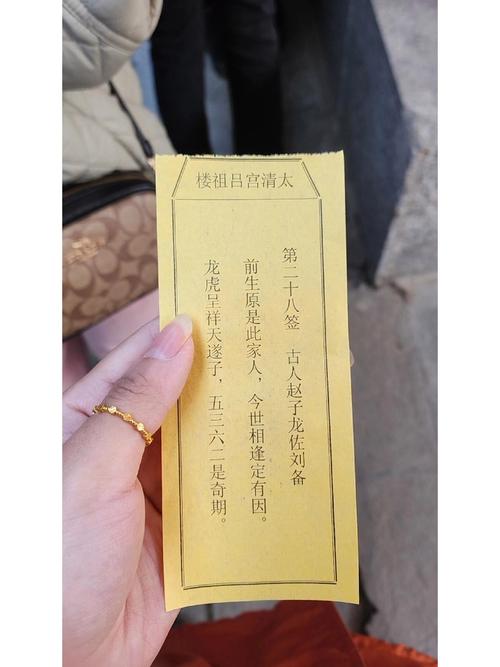 太清宫吕祖楼
第二十八签 古人赵子龙佐刘备
前生原是此家人，今世相逢定有因。
龙虎呈祥天遂子，五三六二是奇期。